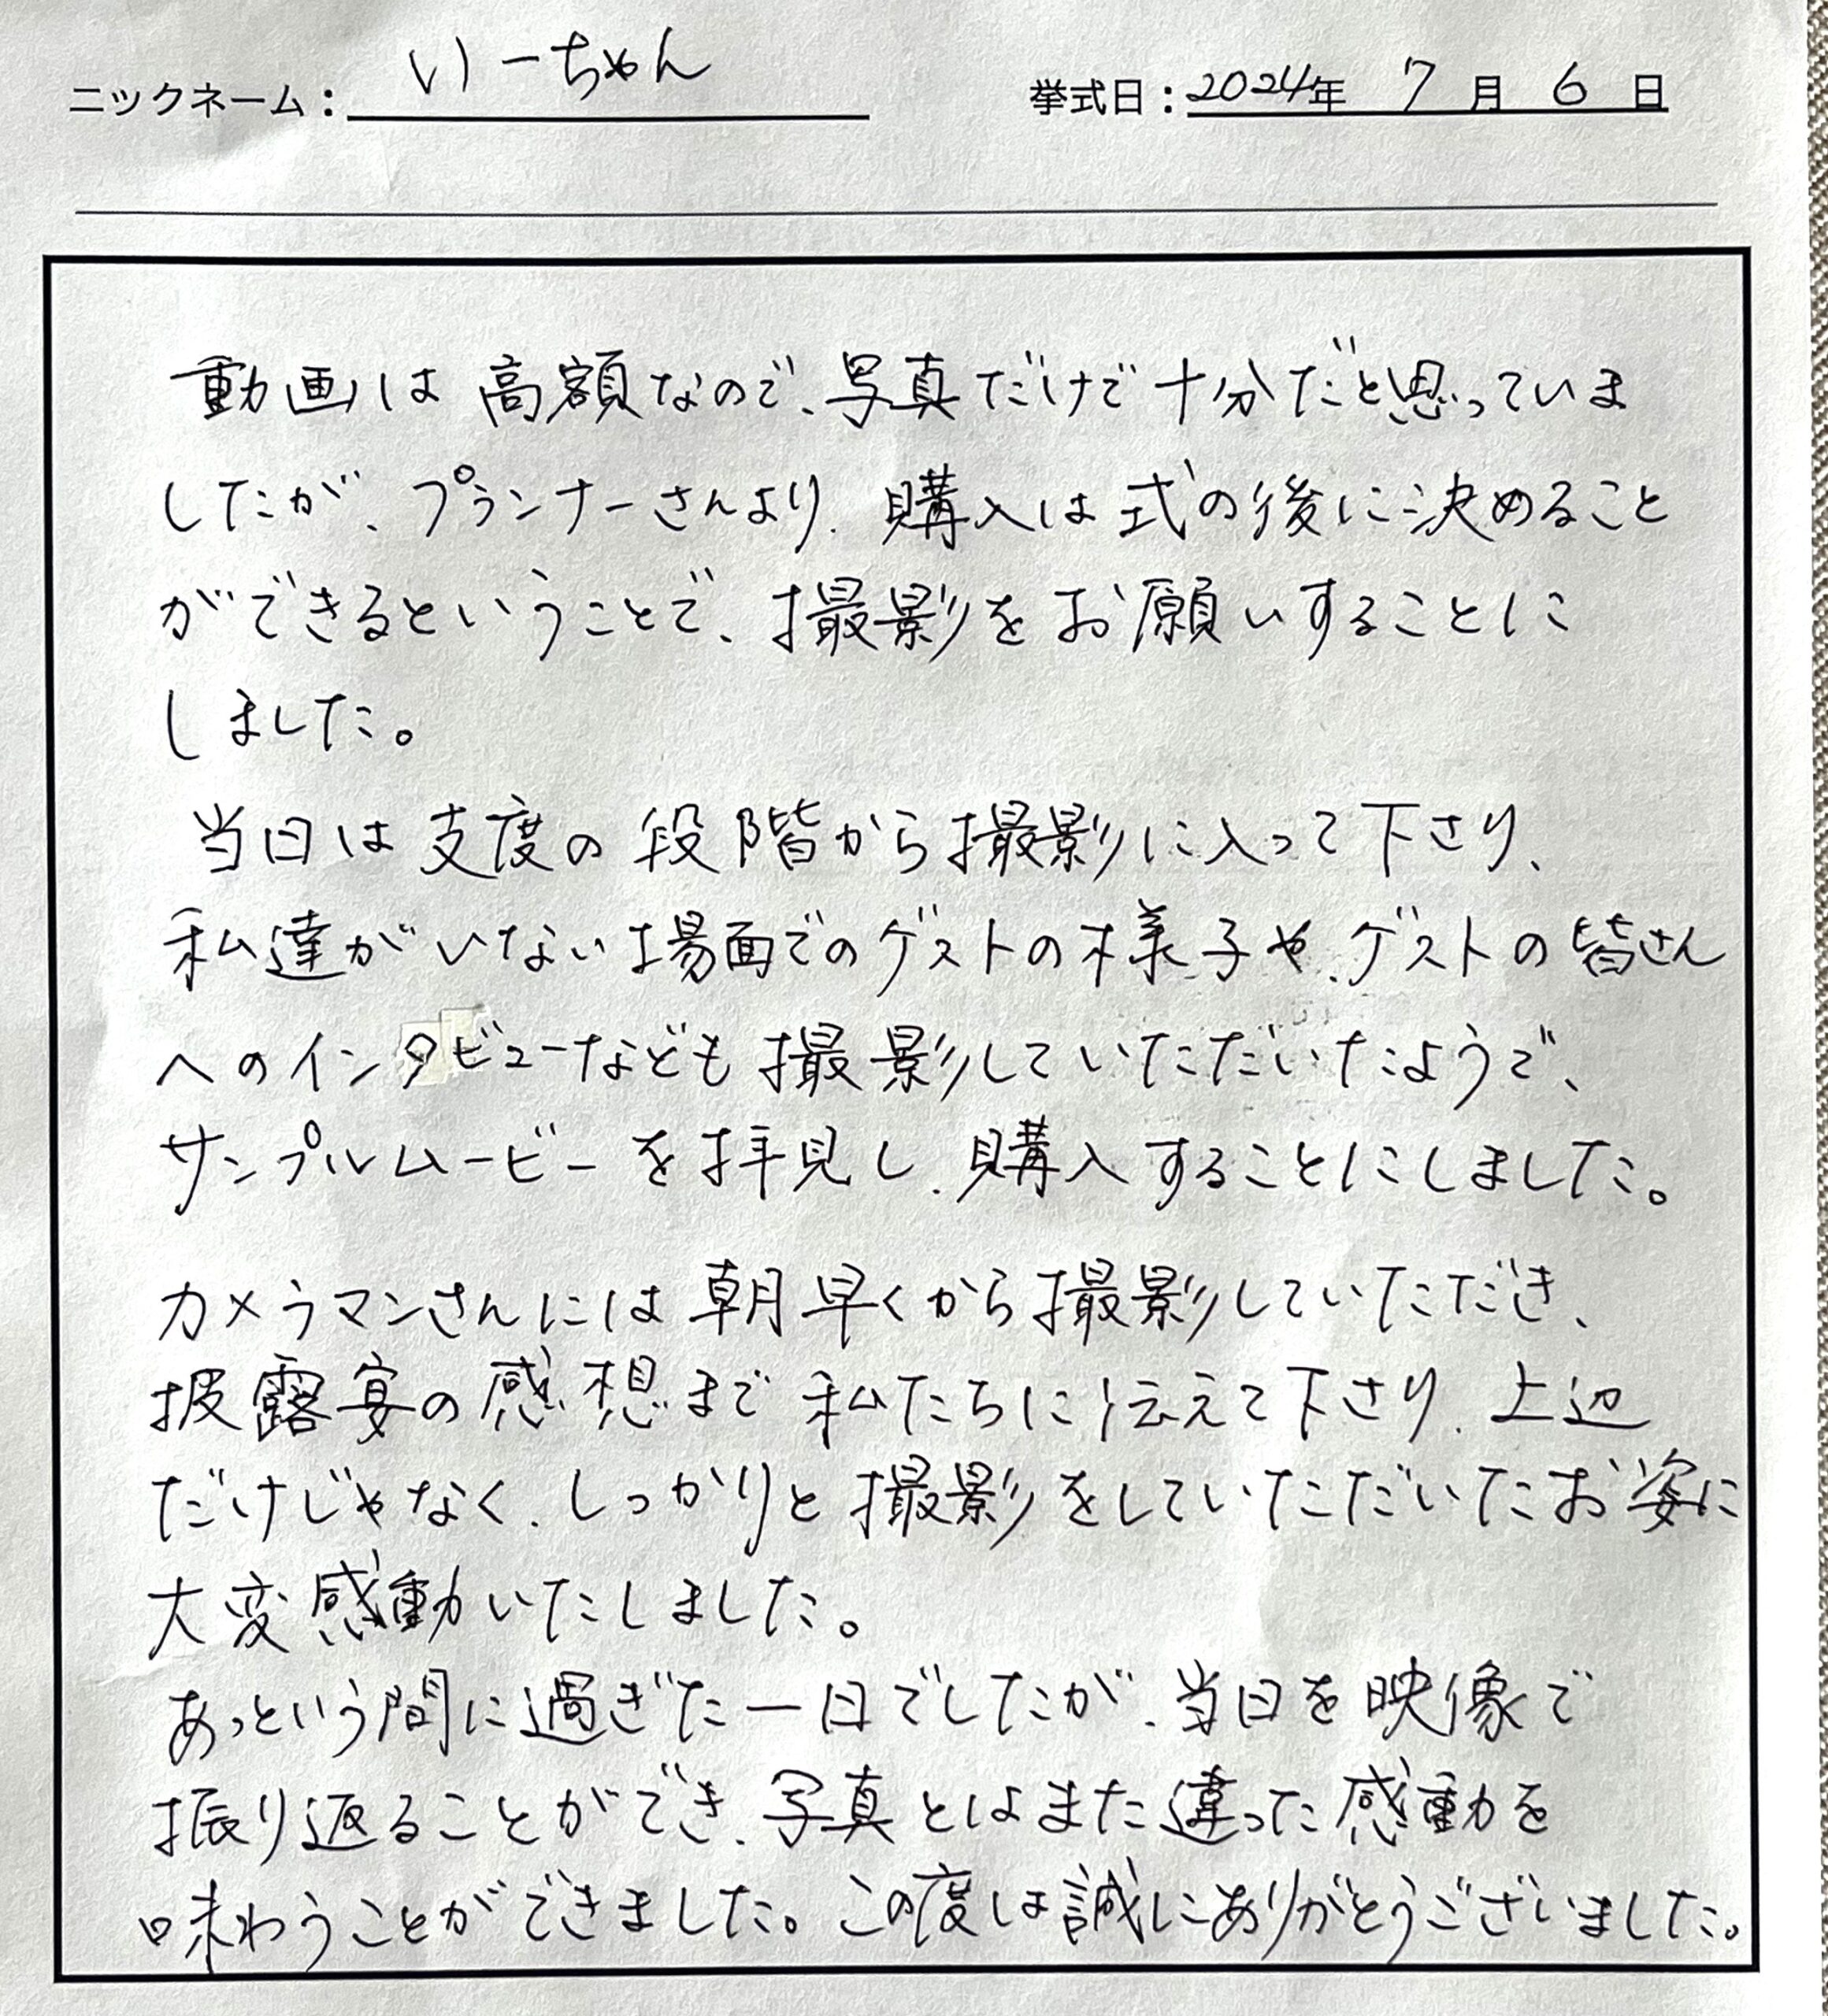 ニックネーム：いーちゃん 挙式日：2024年 7月 6日
動画は高額なので、写真だけで十分だと思っていま
したが、プランナーさんより、購入は式の後に決めること
ができるということで、撮影をお願いすることに
しました。
当日は支度の段階から撮影に入って下さり、
私達がいない場面でのゲストの様子や、ゲストの皆さん
へのインタビューなども撮影していただいたようで、
サンプルムービーを拝見し、購入することにしました。
カメラマンさんには朝早くから撮影していただき、
披露宴の感想まで私たちに伝えて下さり、上辺
だけじゃなく、しっかりと撮影をしていただいたお姿に
大変感動いたしました。
あっという間に過ぎた一日でしたが、当日を映像で
振り返ることができ、写真とはまた違った感動を
味わうことができました。この度は誠にありがとうございました。